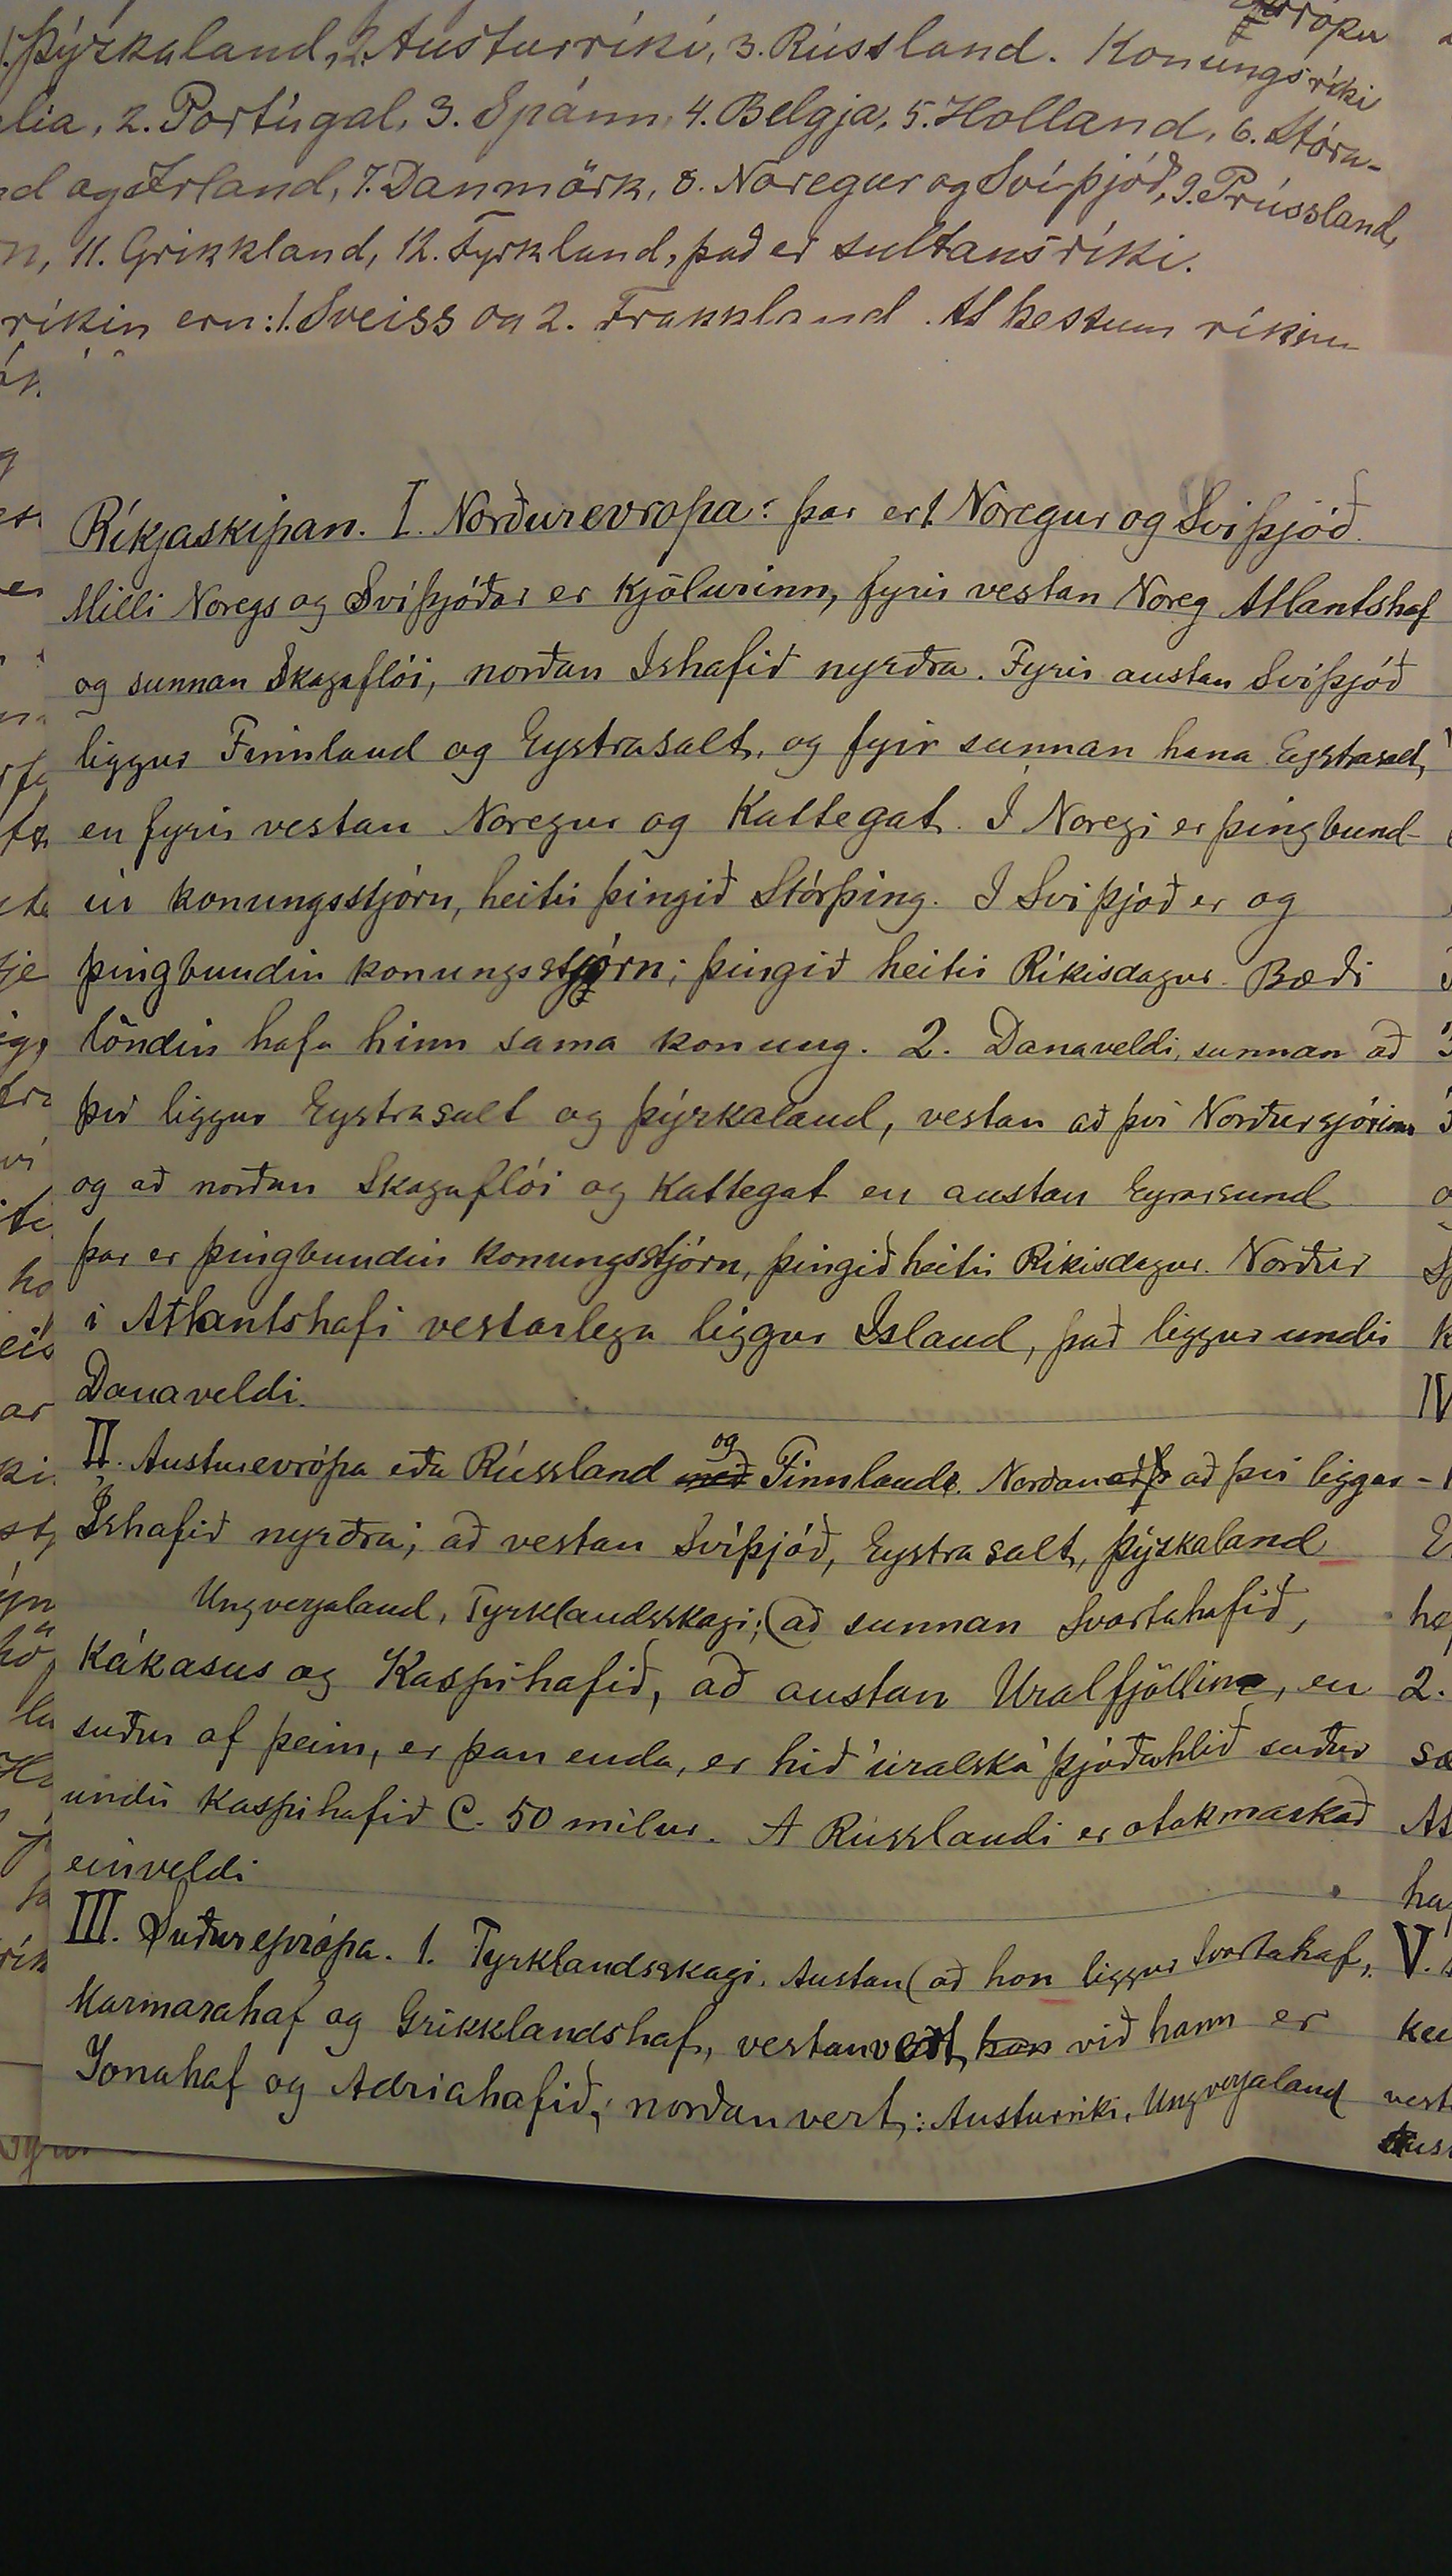 Evrópu
1. Þýzkaland, 2. Austurríki, 3. Rússland. Konungsríki
lia, 2. Portúgal, 3. Spánn, 4. Belgja, 5. Holland, 6. Stóra-
nd og Írland, 7. Danmörk, 8. Noregur og Svíþjóð, 9. Prússland,
n, 11. Grikkland, 12. Tyrkland, það er sultansríki.
ríkin eru: 1. Sveiss og 2. Frakkland. Af þestum ríkjum
Ríkjaskipan. I. Norðurevropa: þar er 1. Noregur og Sviþjóð.
Milli Noregs og Svíþjóðar er Kjölurinn, fyrir vestan Noreg Atlantshaf
og sunnan Skagaflói, norðan Íshafið nyrðra. Fyrir austan Svíþjóð
liggur Finnland og Eystrasalt, og fyir sunnan hana Eystrasalt,
en fyrir vestan Noregur og Kattegat. Í Noregi er þingbund-
in konungsstjórn, heitir þingið Stórþing. I Sviþjoð er og
þingbundin konungsstjórn; þingið heitir Ríkisdagur. Bæði
löndin hafa hinn sama konung. 2. Danaveldi, sunnan að
því liggur Eystrasalt og Þýzkaland, vestan að því Norðursjórinn
og að norðan Skagaflói og Kattegat en austan Eyrarsund
þar er þingbundin konungsstjórn, þingið heitir Ríkisdagur. Norður
i Atlantshafi vestarlega liggur Ísland, það liggur undir
Danaveldi.
II. Austurevrópa eða Rússland með og Finnland. Norðan að þ að því liggur
Íshafið nyrðra; að vestan Svíþjóð, Eystrasalt, Þýzkaland
Ungverjaland, Tyrklandsskagi; (að sunnan Svartahafið,
Kákasus og Kaspihafið, að austan Uralfjöllin, en
suður af þeim, er þau enda, er hið úralska þjóðahlið suður
undir Kaspihafið C. 50 mílur. Á Rússlandi er otakmarkað
einveldi
III. Suðurevrópa. 1. Tyrklandsskagi. Austan (að hon liggur Svartahaf,
Marmarahaf og Grikklandshaf, vestanvert, han við hann er
Jonahaf og Adriahafið; norðanvert: Austurríki, Ungverjaland